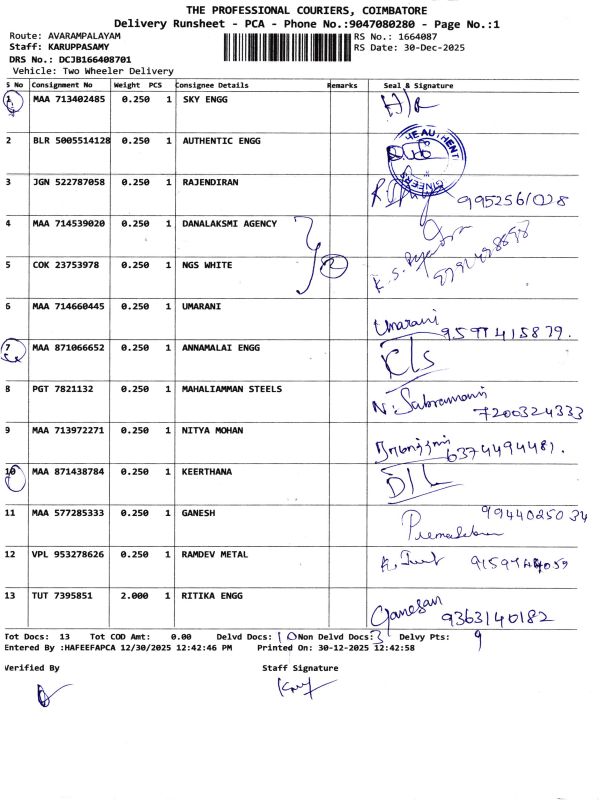 THE PROFESSIONAL COURIERS, COIMBATORE
Delivery Runsheet - PCA - Phone No.:9047080280 - Page No.:1
Route: AVARAMPALAYAM RS No.: 1664087
Staff: KARUPPASAMY RS Date: 30-Dec-2025
DRS No.: DCJB166408701
Vehicle: Two Wheeler Delivery
S No Consignment No Weight PCS Consignee Details Remarks Seal & Signature
1 MAA 713402485 0.250 1 SKY ENGG
2 BLR 5005514128 0.250 1 AUTHENTIC ENGG
3 JGN 522787058 0.250 1 RAJENDIRAN 9952561028
4 MAA 714539020 0.250 1 DANALAKSMI AGENCY
5 COK 23753978 0.250 1 NGS WHITE
6 MAA 714660445 0.250 1 UMARANI Umarani
7 MAA 871066652 0.250 1 ANNAMALAI ENGG C/S
8 PGT 7821132 0.250 1 MAHALIAMMAN STEELS N. Subramani 7200324333
9 MAA 713972271 0.250 1 NITYA MOHAN 6374494481.
10 MAA 871438784 0.250 1 KEERTHANA D/L
11 MAA 577285333 0.250 1 GANESH 9944025034
12 VPL 953278626 0.250 1 RAMDEV METAL
13 TUT 7395851 2.000 1 RITIKA ENGG Ganesan 9363140182
Tot Docs: 13 Tot COD Amt: 0.00 Delvd Docs: 10 Non Delvd Docs: 3 Delvy Pts: 9
Entered By :HAFEEFAPCA 12/30/2025 12:42:46 PM Printed On: 30-12-2025 12:42:58
Verified By Staff Signature